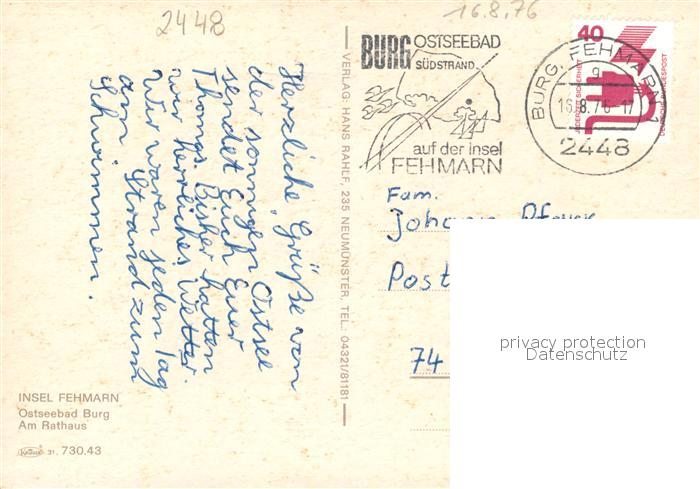 2448
16.8.76
BURG OSTSEEBAD
SÜDSTRAND
auf der insel
FEHMARN
BURG, FEHMARN
g
16.8.76-17
2448
40
JEDERZEIT SICHERHEIT
DEUTSCHE BUNDESPOST
Herzliche Grüße von
der sonnigen Ostsee
sendet Euch Euer
Thomas. Bisher hatten
wir herrliches Wetter.
Wir waren jeden Tag
am Strand zum
Schwimmen.
VERLAG: HANS RAHLF, 235 NEUMÜNSTER, TEL.: 04321/81181
Fam.
Johann
Post
74
privacy protection
Datenschutz
INSEL FEHMARN
Ostseebad Burg
Am Rathaus
Krüger 31. 730.43